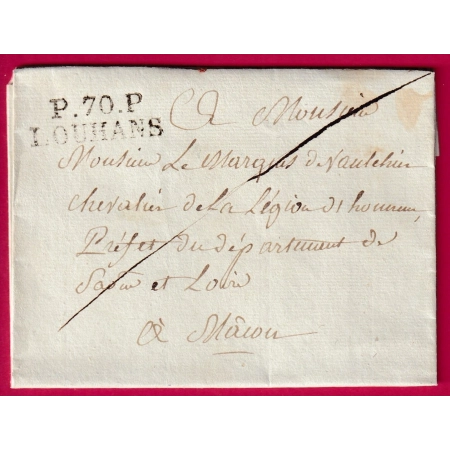 P.70.P
LOUHANS
A Monsieur
Monsieur Le Marquis de Vaulchier
chevalier de La Légion d'honneur,
Préfet du département de
Saône et Loire
à Mâcon